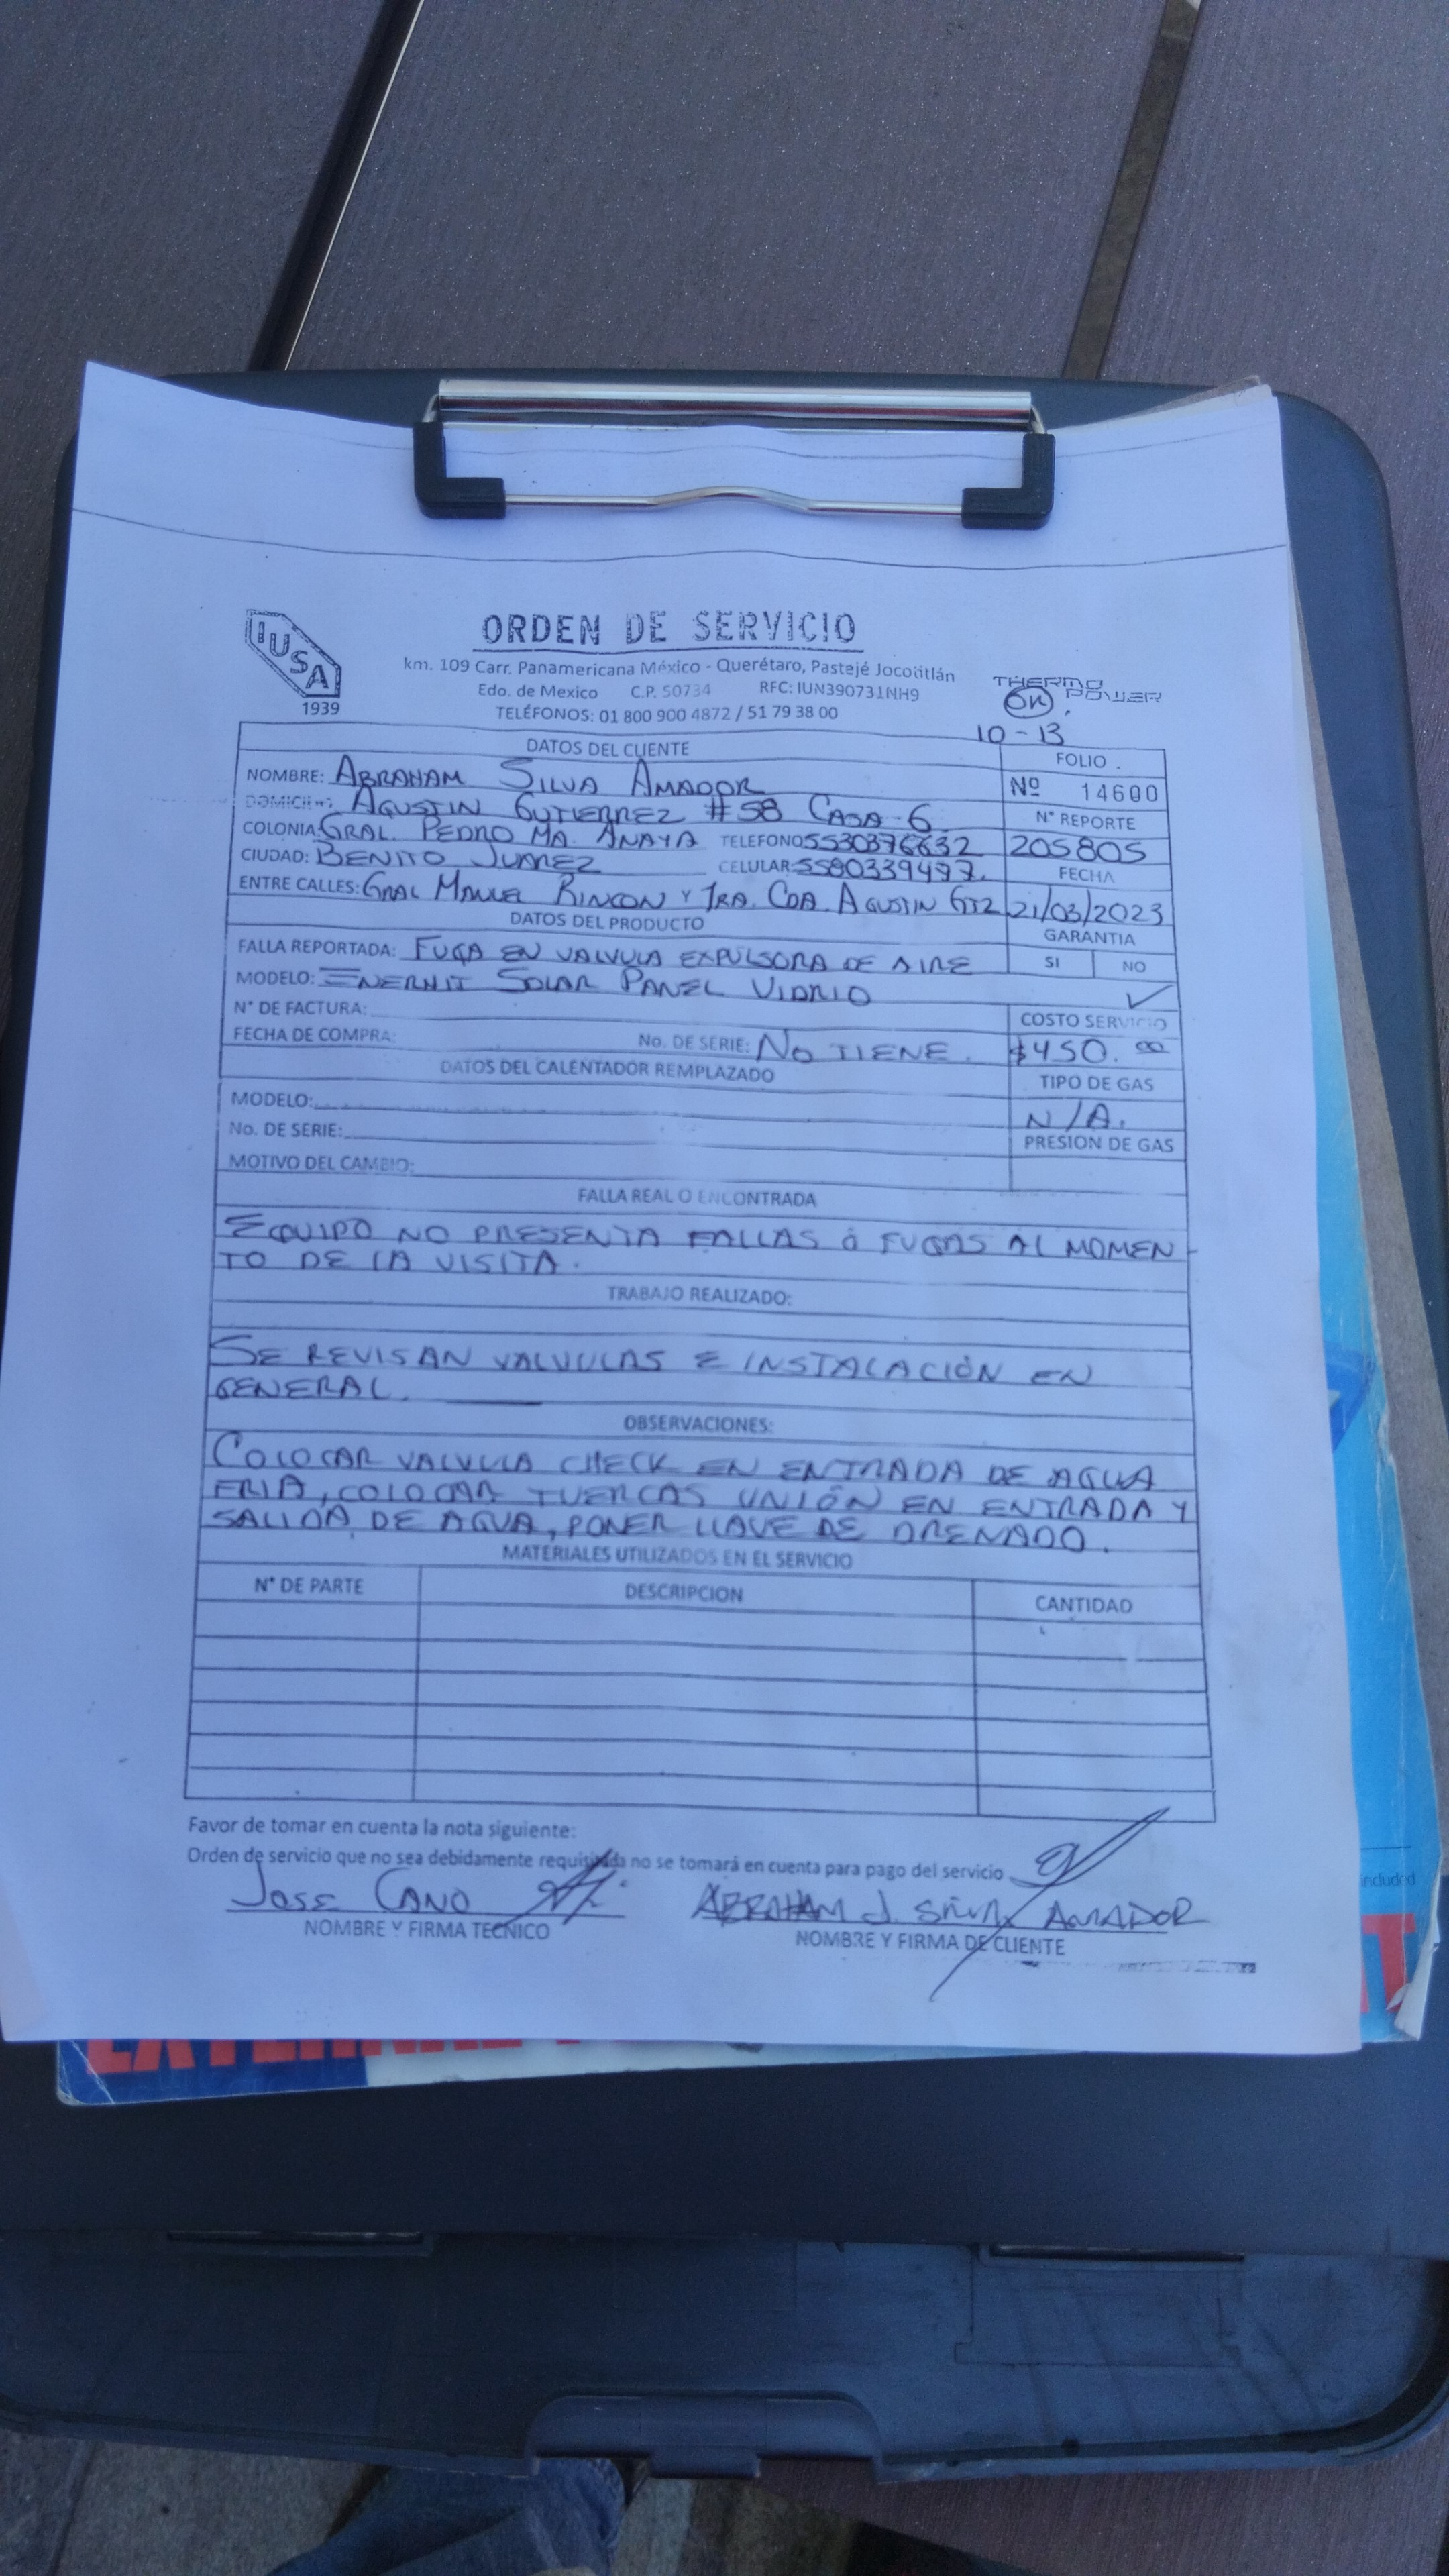 IUSA
1939
ORDEN DE SERVICIO
km. 109 Carr. Panamericana México - Querétaro, Pastejé Jocotitlán
Edo. de Mexico C.P. 50734 RFC: IUN390731NH9
TELÉFONOS: 01 800 900 4872 / 51 79 38 00
THERMO POWER
10 - 13
DATOS DEL CLIENTE
FOLIO
NOMBRE: ABRAHAM SILVA AMADOR
Nº 14600
DOMICILIO: AGUSTIN GUTIERREZ #58 CASA 6
N° REPORTE
COLONIA: GRAL. PEDRO MA. ANAYA TELEFONO: 5530376632
205805
CIUDAD: BENITO JUAREZ CELULAR: 5580339497.
FECHA
ENTRE CALLES: GRAL MANUEL RINCON Y 1RA. CDA. AGUSTIN GTZ
21/03/2023
DATOS DEL PRODUCTO
GARANTIA
FALLA REPORTADA: FUGA EN VALVULA EXPULSORA DE AIRE
SI NO
MODELO: ENERNIT SOLAR PANEL VIDRIO
✓
N° DE FACTURA:
COSTO SERVICIO
FECHA DE COMPRA: No. DE SERIE: NO TIENE.
$450.00
DATOS DEL CALENTADOR REMPLAZADO
TIPO DE GAS
MODELO:
N/A.
No. DE SERIE:
PRESION DE GAS
MOTIVO DEL CAMBIO:
FALLA REAL O ENCONTRADA
EQUIPO NO PRESENTA FALLAS Ó FUGAS AL MOMEN-
TO DE LA VISITA.
TRABAJO REALIZADO:
SE REVISAN VALVULAS E INSTALACIÓN EN
GENERAL.
OBSERVACIONES:
COLOCAR VALVULA CHECK EN ENTRADA DE AGUA
FRIA, COLOCAR TUERCAS UNIÓN EN ENTRADA Y
SALIDA DE AGUA, PONER LLAVE DE DRENADO.
MATERIALES UTILIZADOS EN EL SERVICIO
N° DE PARTE DESCRIPCION CANTIDAD
Favor de tomar en cuenta la nota siguiente:
Orden de servicio que no sea debidamente requisitada no se tomará en cuenta para pago del servicio
JOSE CANO
ABRAHAM J. SILVA AMADOR
NOMBRE Y FIRMA TECNICO
NOMBRE Y FIRMA DE CLIENTE
included